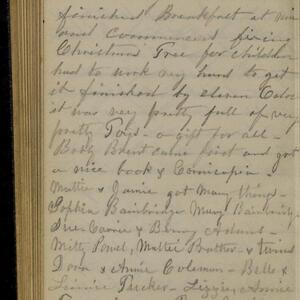 finished Breakfast at nine
and commenced fixing
Christmas Tree for children
had to work very hard to get
it finished by eleven Oclock
it was very pretty full of very
pretty Toys - a gift for all -
Body Brent came first and got
a nice book & Cornucopia -
Mattie & Jamie got Many things -
Sophia Bainbridge Mary Bainbridge
Sue Carrie & Benny Adams -
Mitty Powel, Mattie Brother - & twins
Dora & Annie Coleman - Belle &
Linnie Tucker - Lizzie, Annie